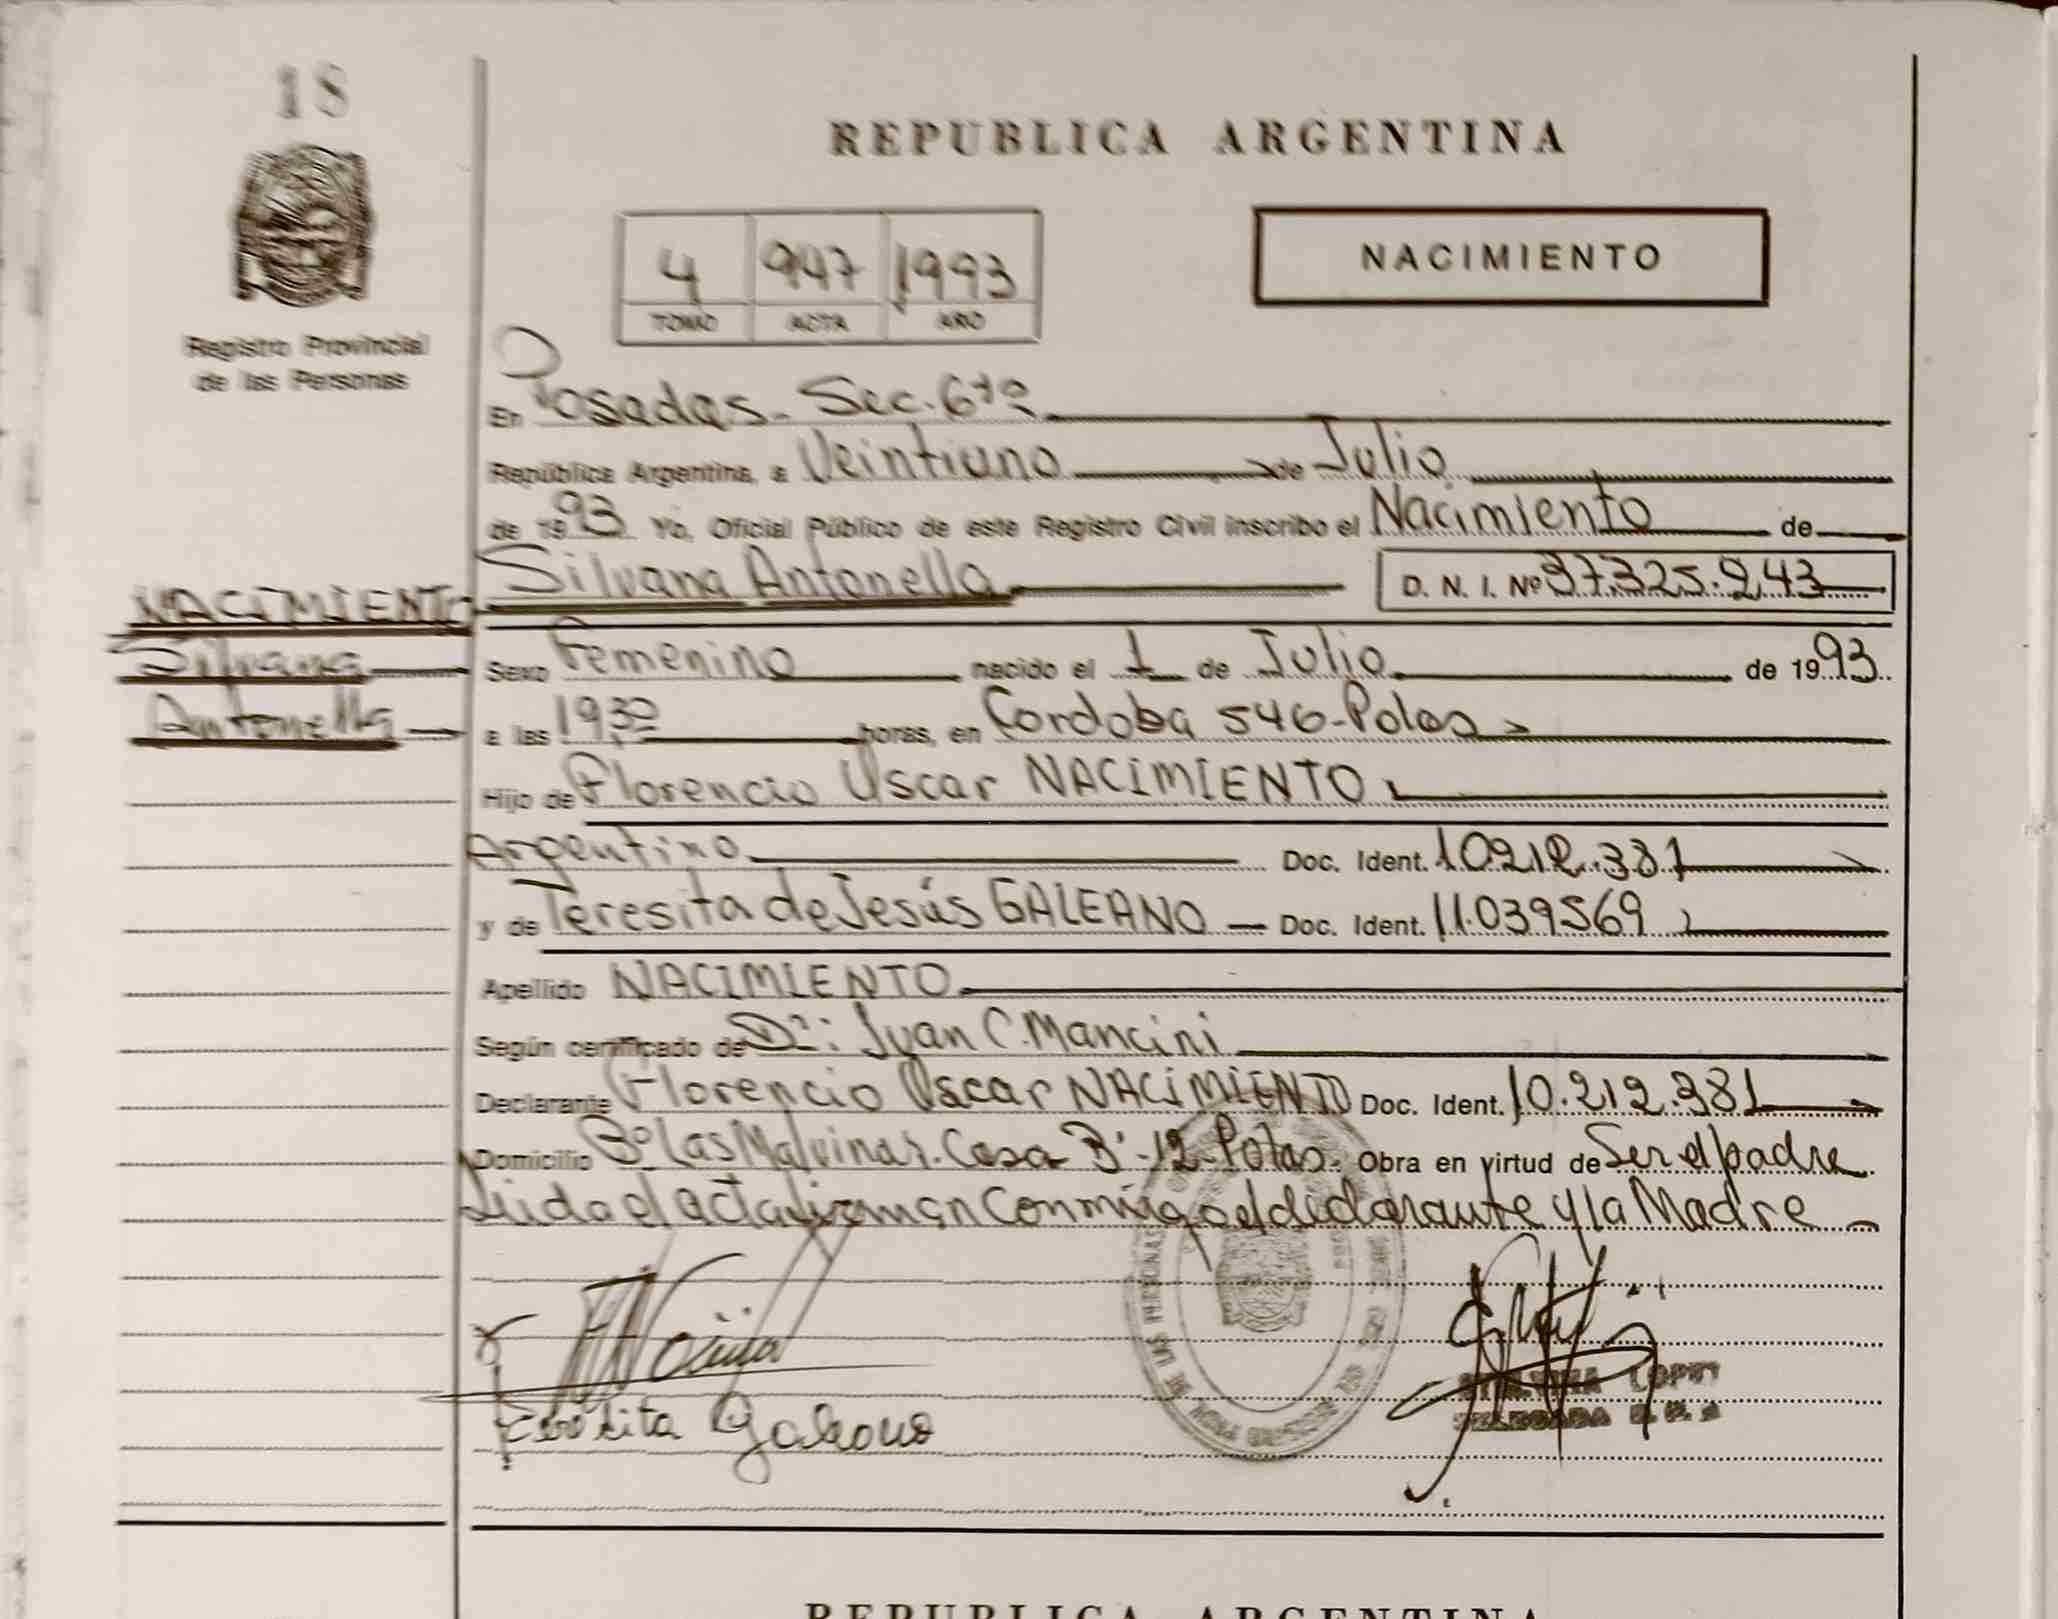 18
REPUBLICA ARGENTINA
4 947 1993
TOMO ACTA AÑO
NACIMIENTO
Registro Provincial
de las Personas
En Posadas - Sec. 6ta
República Argentina, a Veintiuno de Julio
de 1993 Yo, Oficial Público de este Registro Civil inscribo el Nacimiento de
Silvana Antonella D. N. I. Nº 37.325.243
NACIMIENTO
Silvana
Antonella
Sexo Femenino nacido el 1 de Julio de 1993
a las 19,30 horas, en Cordoba 546 - Pdas
Hijo de Florencio Oscar NACIMIENTO
Argentino Doc. Ident. 10.212.381
y de Teresita de Jesús GALEANO Doc. Ident. 11.039569
Apellido NACIMIENTO
Según certificado de Dr: Juan C. Mancini
Declarante Florencio Oscar NACIMIENTO Doc. Ident. 10.212.381
Domicilio Bº Las Malvinas. Casa B' - 12 - Pdas. Obra en virtud de Ser el padre
Leida el acta firman conmigo el declarante y la Madre
Teresita Galeano
LOPEZ
DELEGADA
REPUBLICA ARGENTINA